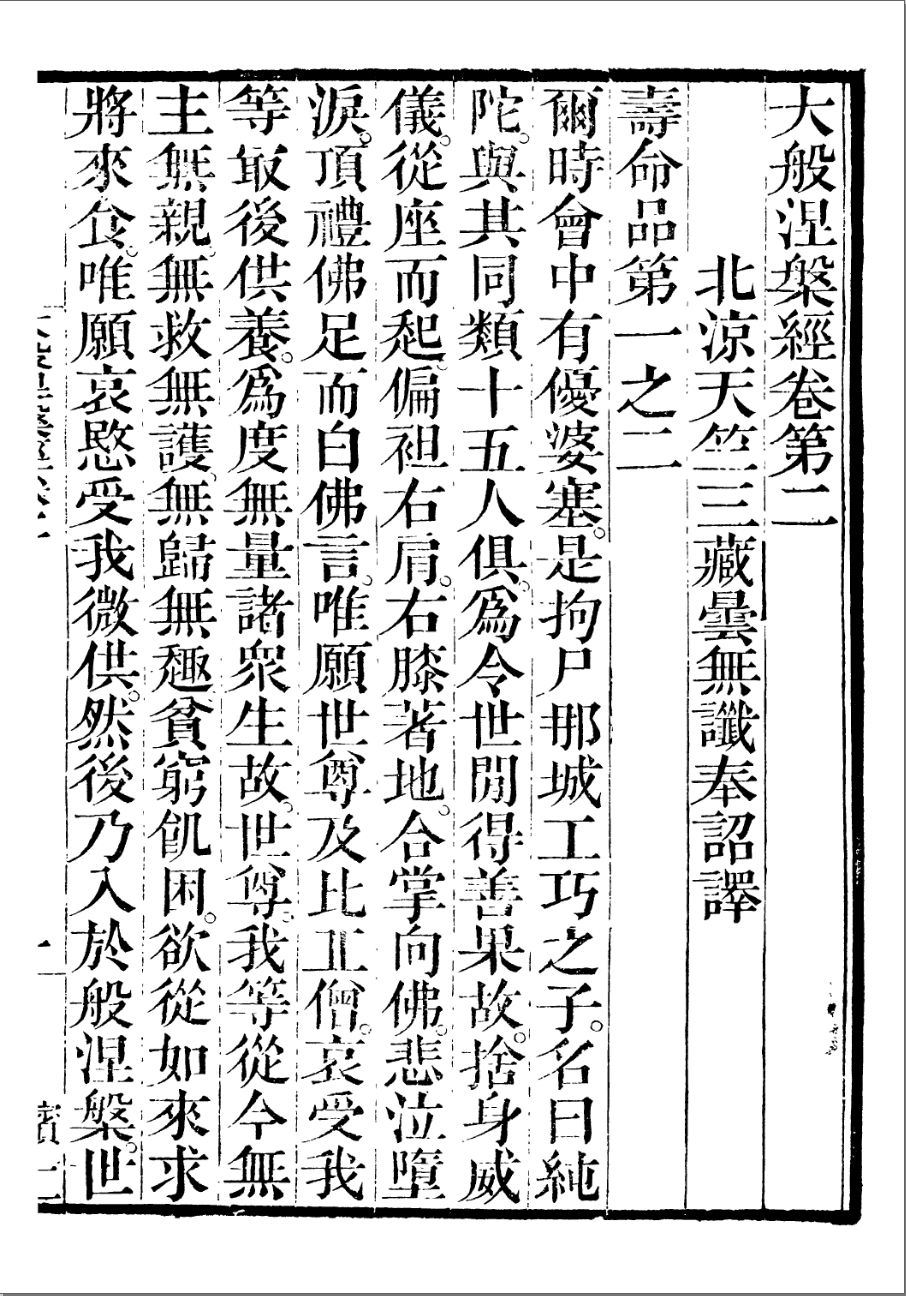 大般涅槃經卷第二
北涼天竺三藏曇無讖奉詔譯
壽命品第一之二
爾時會中有優婆塞。是拘尸那城工巧之子。名曰純
陀。與其同類十五人俱。為令世閒得善果故。捨身威
儀。從座而起。偏袒右肩。右膝著地。合掌向佛。悲泣墮
淚。頂禮佛足而白佛言。唯願世尊及比丘僧。哀受我
等最後供養。為度無量諸眾生故。世尊。我等從今無
主無親。無救無護。無歸無趣。貧窮飢困。欲從如來求
將來食。唯願哀愍受我微供。然後乃入於般涅槃。世